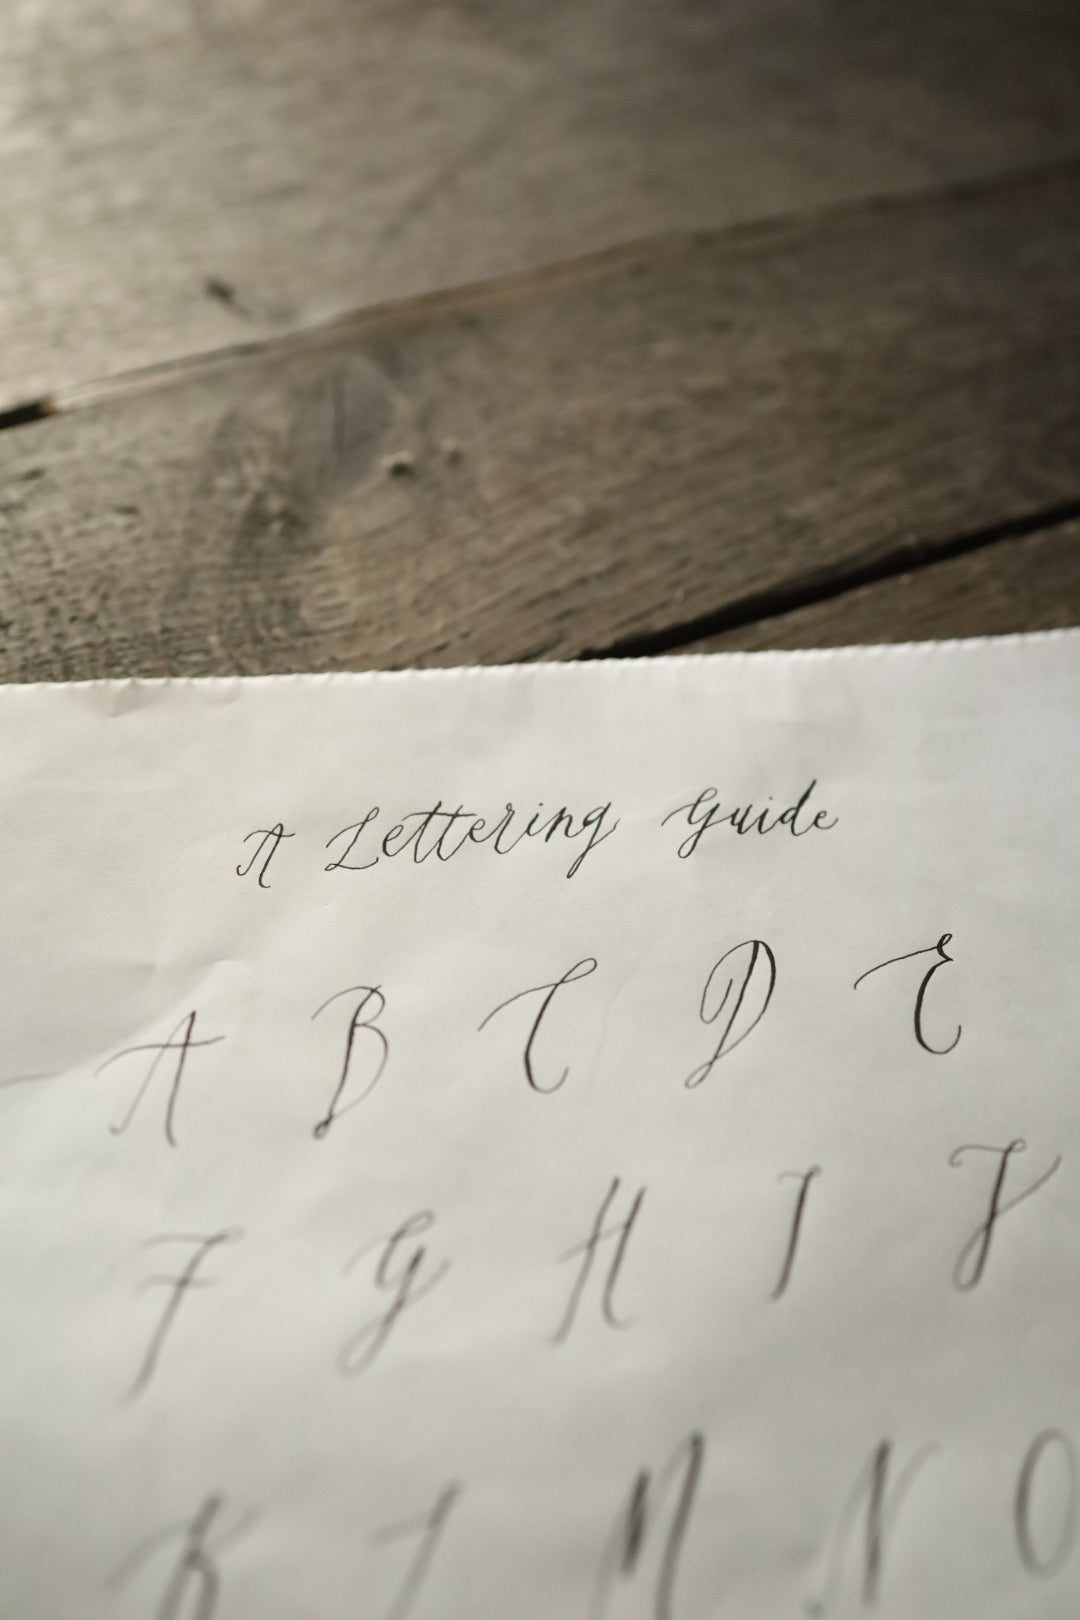 A Lettering Guide
A B C D E
F G H I J
K L M N O